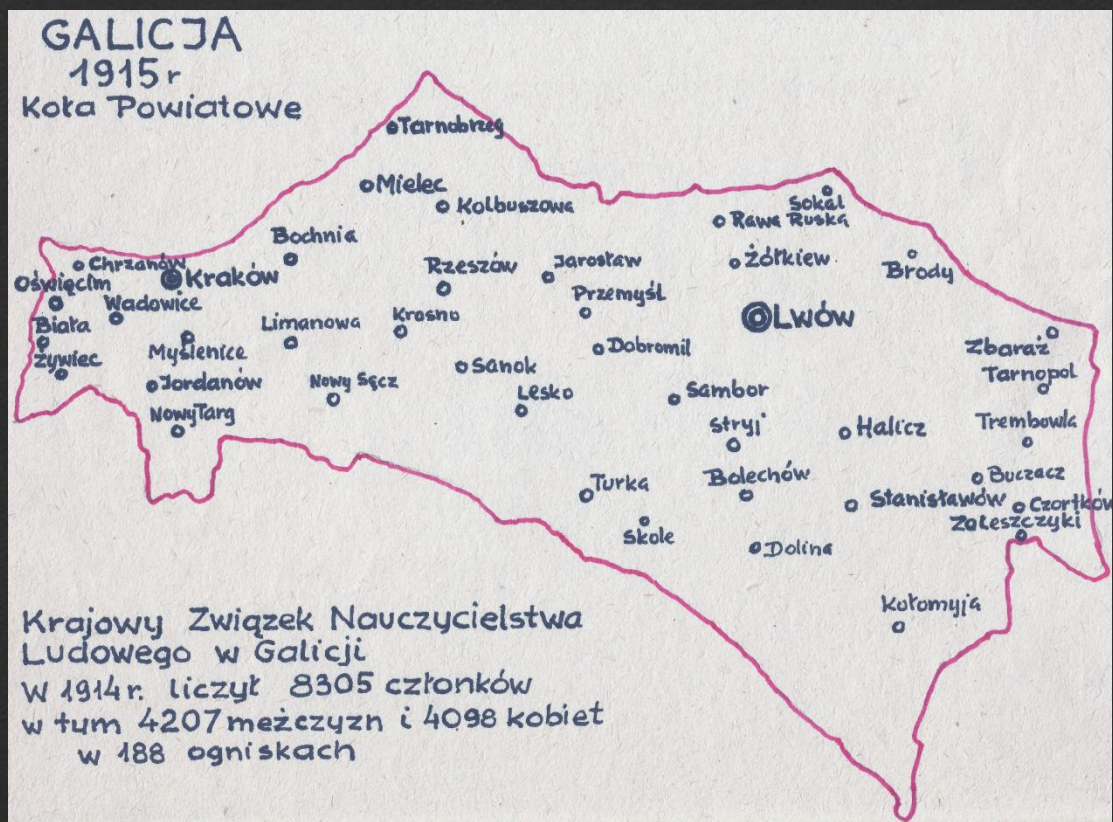 GALICJA
1915 r
Koła Powiatowe
Tarnobrzeg
Mielec
Kolbuszowa
Sokal
Rawa Ruska
Bochnia
Chrzanów
Kraków
Oświęcim
Rzeszów
Jarosław
Żółkiew
Brody
Przemyśl
Wadowice
Krosno
Lwów
Biała
Limanowa
Myślenice
Dobromil
Zbaraż
Żywiec
Sanok
Tarnopol
Jordanów
Nowy Sącz
Lesko
Sambor
Nowy Targ
Stryj
Halicz
Trembowla
Turka
Bolechów
Buczacz
Stanisławów
Czortków
Zaleszczyki
Skole
Dolina
Kołomyja
Krajowy Związek Nauczycielstwa
Ludowego w Galicji
W 1914 r. liczył 8305 członków
w tym 4207 meżczyzn i 4098 kobiet
w 188 ogniskach